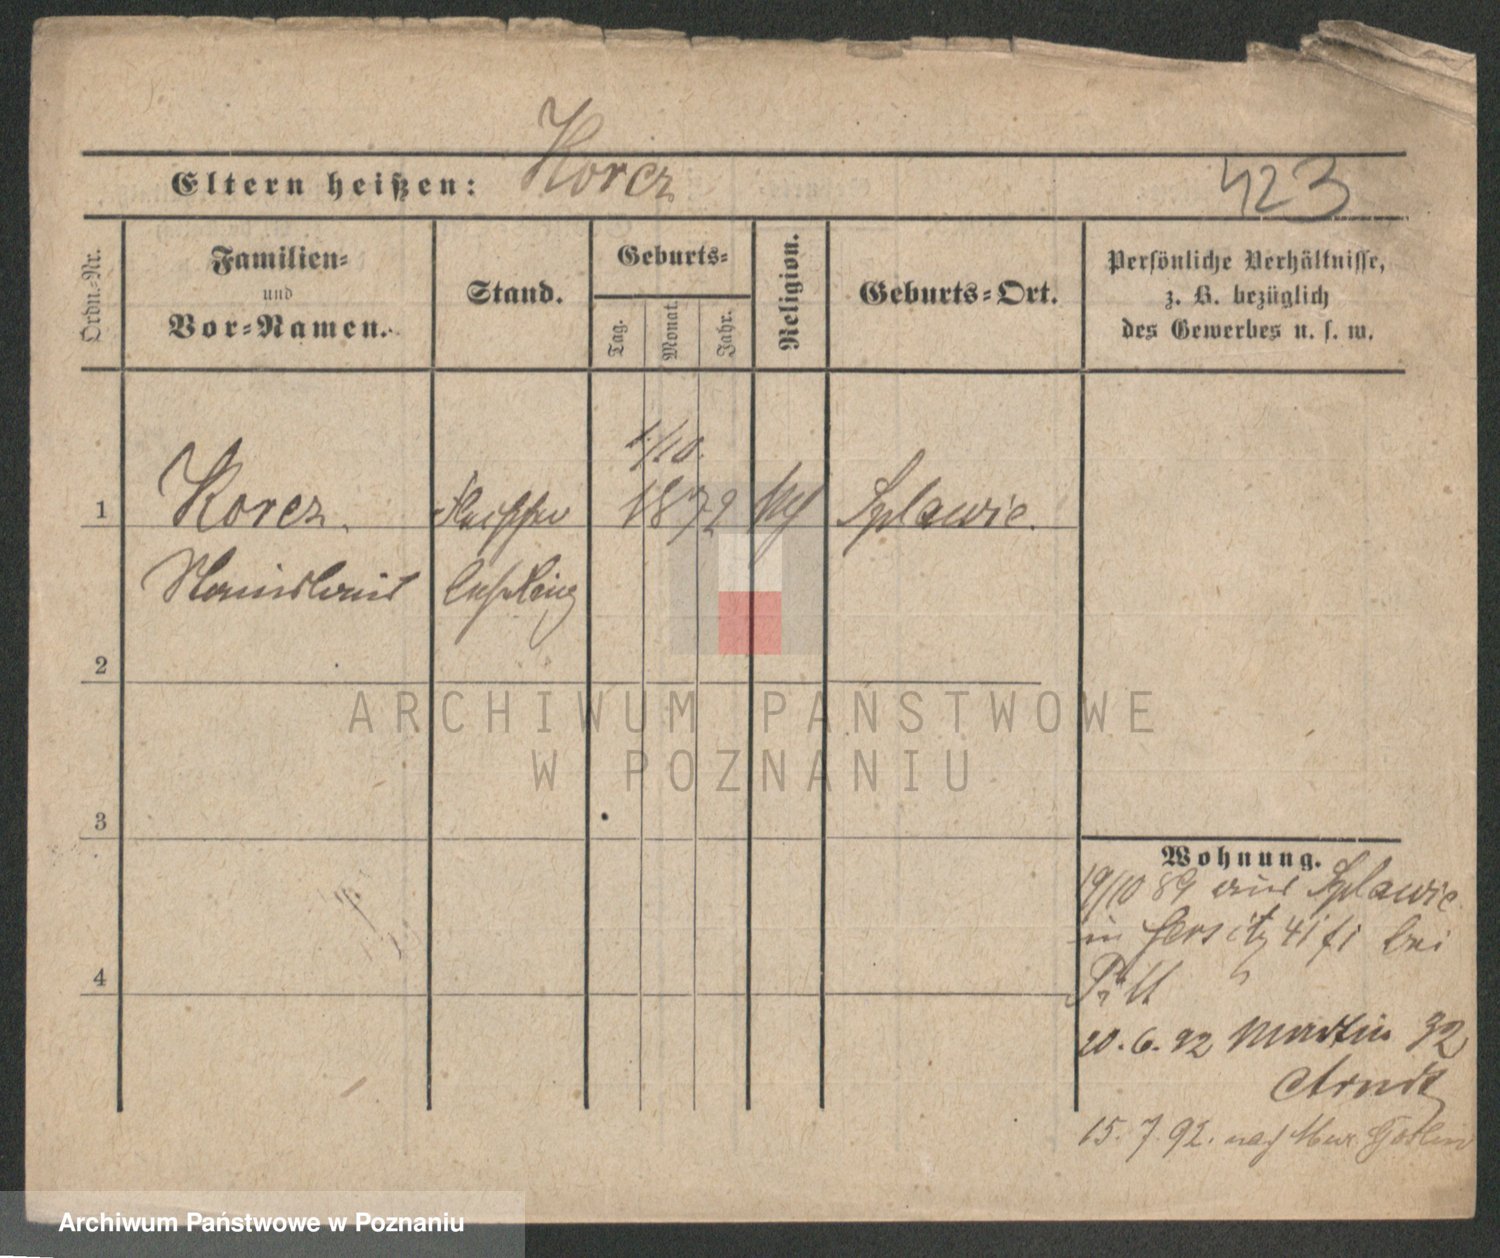 Korcz
Eltern heißen:
423
Ordn.-Nr.
Familien-
und
Vor-Namen.
Stand.
Geburts-
Tag.
Monat.
Jahr.
Religion.
Geburts-Ort.
Persönliche Verhältnisse,
z. B. bezüglich
des Gewerbes u. s. w.
1/10.
1
Korcz
1872
Splawie.
Stanislaus
2
ARCHIWUM PAŃSTWOWE
W POZNANIU
3
Wohnung.
19/10 89 aus Splawie
in Jersitz 41 bei
4
20. 6. 92 Martin 32
Arndt
15. 7. 92. nach Mur. Goslin
Archiwum Państwowe w Poznaniu